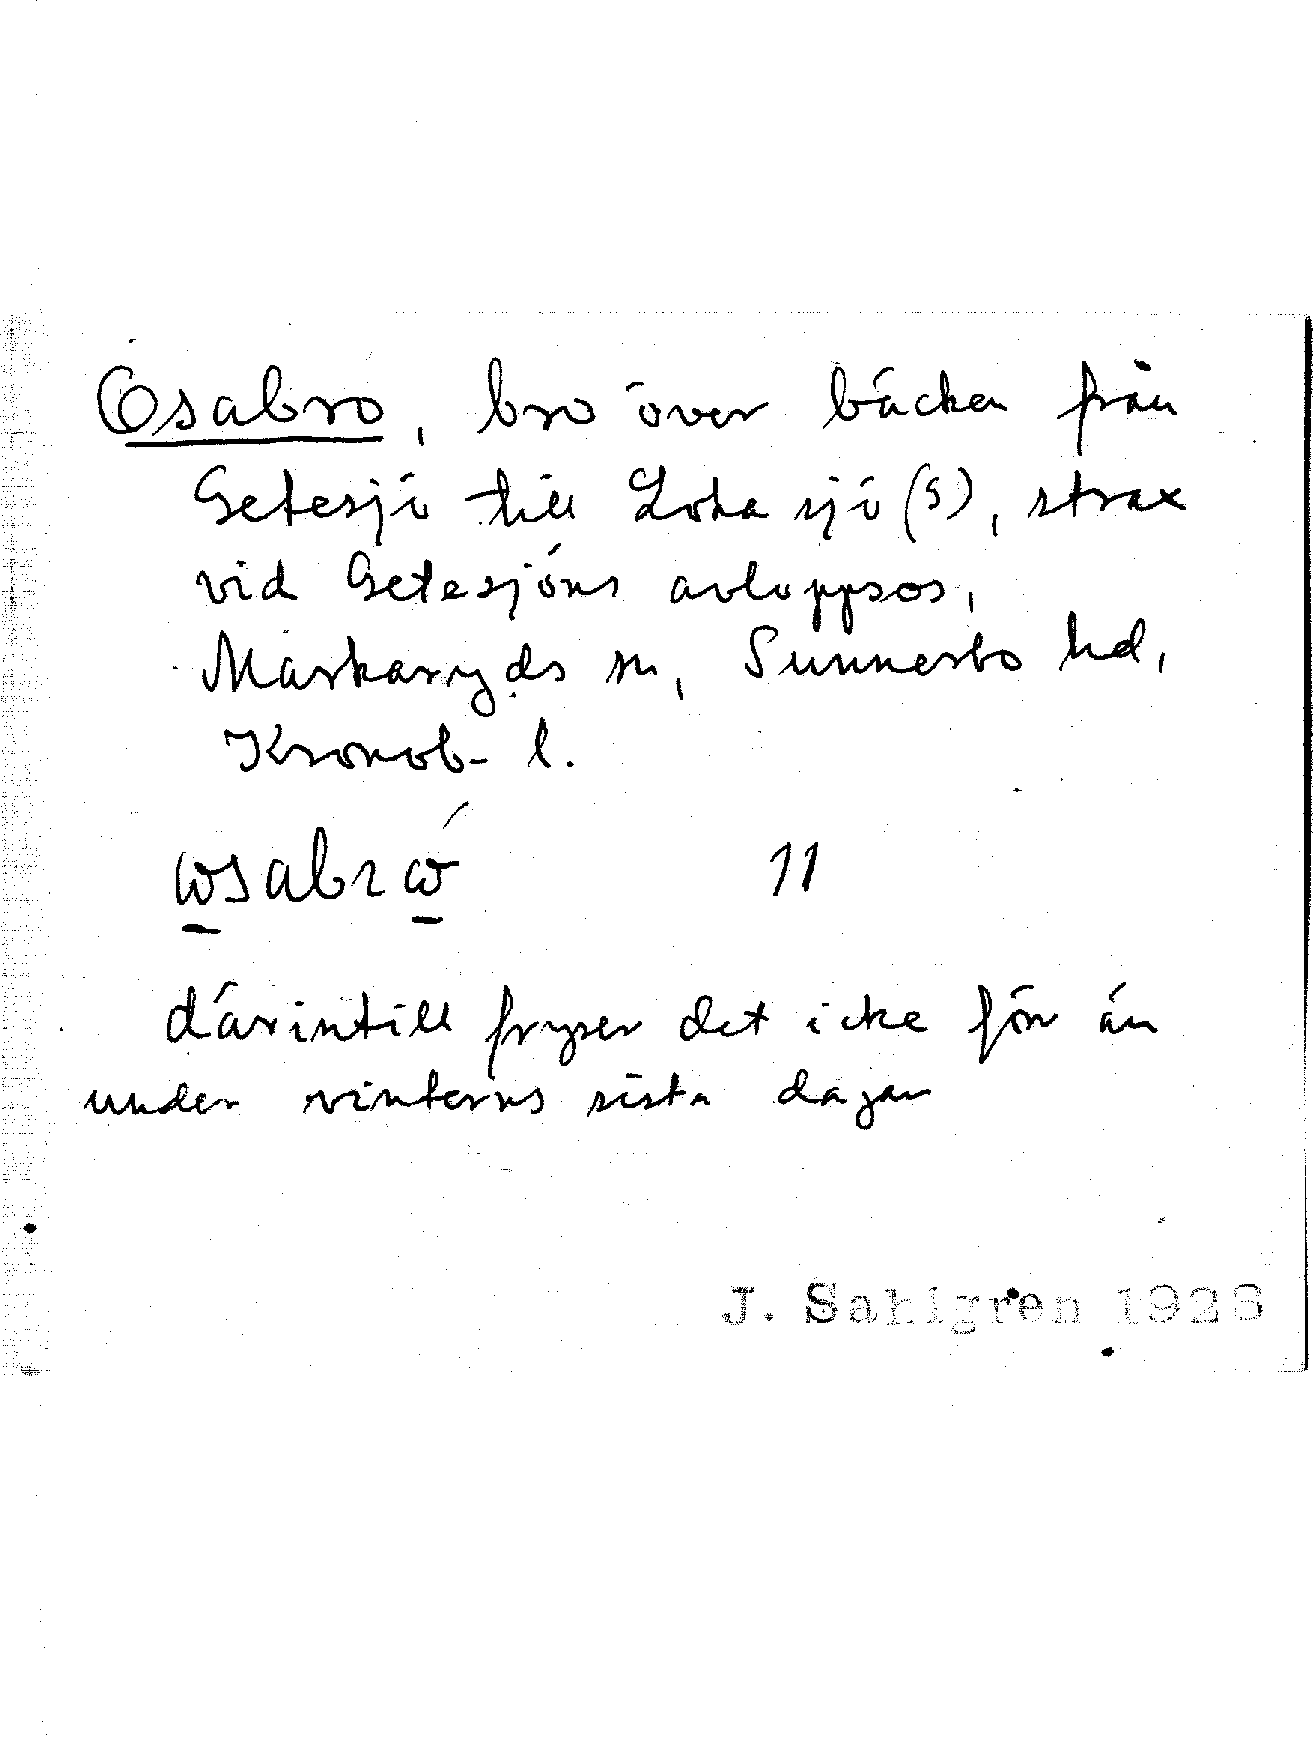 Osabro, bro över bäcken från
Getesjö till Loka sjö (S), strax
vid Getesjöns avloppsos,
Markaryds sn, Sunnerbo hd,
Kronob- l.
ωsabrώ 11
därintill fryser det icke förr än
under vinterns sista dagar
J. Sahlgren 1926